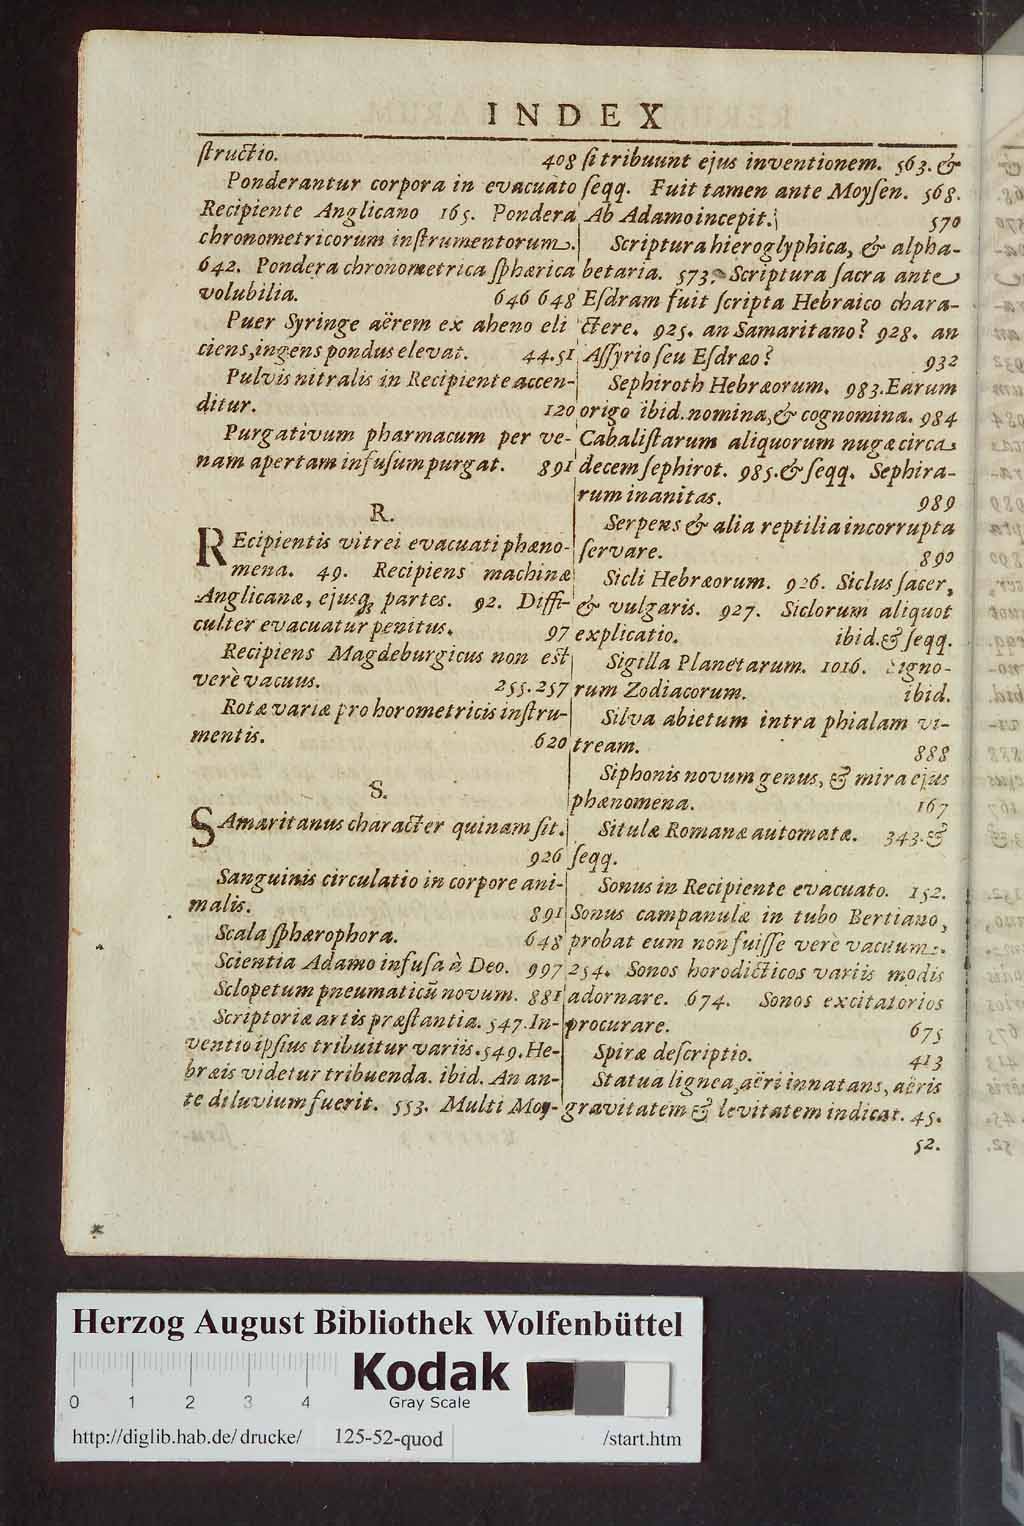 INDEX
ſtructio. 408
Ponderantur corpora in evacuato
Recipiente Anglicano 165. Pondera
chronometricorum inſtrumentorum.
642. Pondera chronometrica ſphærica
volubilia. 646 648
Puer Syringe aërem ex aheno eli
ciens, ingens pondus elevat. 44. 51
Pulvis nitralis in Recipiente accen-
ditur. 120
Purgativum pharmacum per ve-
nam apertam infuſum purgat. 891
R.
REcipientis vitrei evacuati phæno-
mena. 49. Recipiens machinæ
Anglicanæ, ejusq; partes. 92. Diffi-
culter evacuatur penitus. 97
Recipiens Magdeburgicus non eſt
verè vacuus. 255. 257
Rotæ variæ pro horometricis inſtru-
mentis. 620
S.
SAmaritanus character quinam ſit.
926
Sanguinis circulatio in corpore ani-
malis. 891
Scala ſphærophora. 648
Scientia Adamo infuſa à Deo. 997
Sclopetum pneumaticũ novum. 881
Scriptoriæ artis præſtantia. 547. In-
ventio ipſius tribuitur variis. 549. He-
bræis videtur tribuenda. ibid. An an-
te diluvium fuerit. 553. Multi Moy-
ſi tribuunt ejus inventionem. 563. &
ſeqq. Fuit tamen ante Moyſen. 568.
Ab Adamo incepit. 570
Scriptura hieroglyphica, & alpha-
betaria. 573. Scriptura ſacra ante
Eſdram fuit ſcripta Hebraico chara-
ctere. 925. an Samaritano? 928. an
Aſſyrio ſeu Eſdræo? 932
Sephiroth Hebræorum. 983. Earum
origo ibid. nomina, & cognomina. 984
Cabaliſtarum aliquorum nugæ circa
decem ſephirot. 985. & ſeqq. Sephira-
rum inanitas. 989
Serpens & alia reptilia incorrupta
ſervare. 890
Sicli Hebræorum. 926. Siclus ſacer,
& vulgaris. 927. Siclorum aliquot
explicatio. ibid. & ſeqq.
Sigilla Planetarum. 1016. Signo-
rum Zodiacorum. ibid.
Silva abietum intra phialam vi-
tream. 888
Siphonis novum genus, & mira ejus
phænomena. 167
Situlæ Romanæ automatæ. 343. &
ſeqq.
Sonus in Recipiente evacuato. 152.
Sonus campanulæ in tubo Bertiano,
probat eum non fuiſſe verè vacuum.
254. Sonos horodicticos variis modis
adornare. 674. Sonos excitatorios
procurare. 675
Spiræ deſcriptio. 413
Statua lignea, aëri innatans, aëris
gravitatem & levitatem indicat. 45.
52.
Herzog August Bibliothek Wolfenbüttel
Kodak
Gray Scale
0 1 2 3 4
http://diglib.hab.de/drucke/ 125-52-quod /start.htm